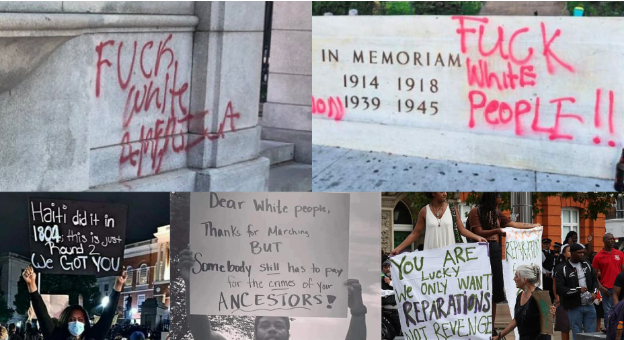 FUCK
White
AMERICA
IN MEMORIAM
1914 1918
1939 1945
FUCK
White
PEOPLE!!
Haiti did it in
1804; this is just
Round 2
We GOT YOU
Dear White people,
Thanks for Marching
BUT
Somebody still has to pay
for the crimes of your
ANCESTORS!
YOU ARE
Lucky
WE ONLY WANT
REPARATIONS
NOT REVENGE
REPARATION